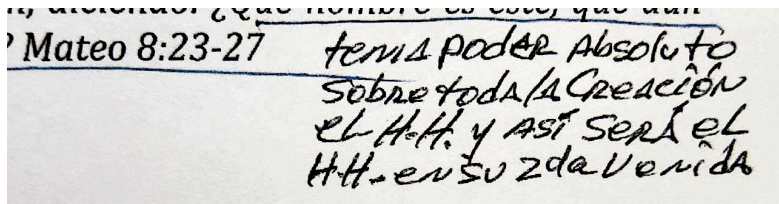 , diciendo: ¿Qué hombre es este, que aun
? Mateo 8:23-27
tenía PodER Absoluto
Sobre toda la Creación
el H-H. y Así SERÁ eL
H-H- en su 2da Venida